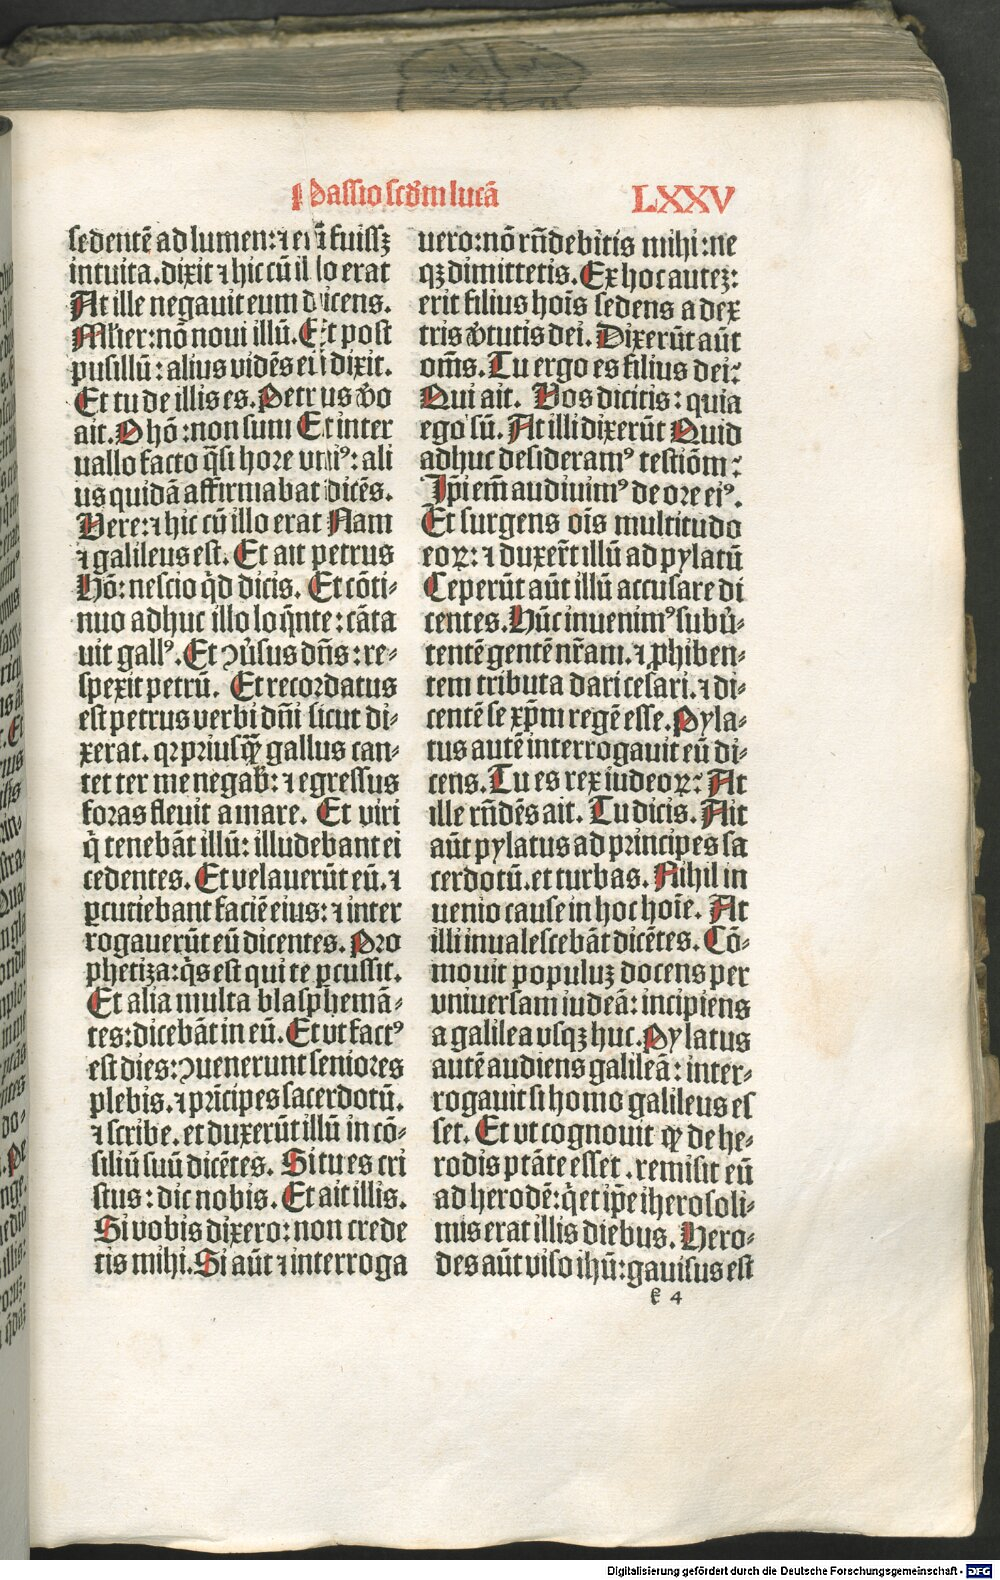 Passio scd̄m lucā LXXV
sedentē ad lumen: ⁊ eū fuissꝫ
intuita. dixit ⁊ hic cū illo erat
At ille negauit eum dicens.
Mlier: nō noui illū. Et post
pusillū: alius vidēs eū dixit.
Et tu de illis es. Petrus v̄o
ait. O hō: non sum Et inter
uallo facto q̄si hore vniꝰ: ali
us quidā affirmabat dicēs.
Vere: ⁊ hic cū illo erat Nam
⁊ galileus est. Et ait petrus
Hō: nescio q̄d dicis. Et cōti-
nuo adhuc illo loq̄nte: cāta
uit gallꝰ. Et ꝯūsus dn̄s: re-
spexit petrū. Et recordatus
est petrus verbi dn̄i sicut di-
xerat. qꝛ priusꝙ̄ gallus can-
tet ter me negab̄: ⁊ egressus
foras fleuit amare. Et viri
q̄ tenebāt illū: illudebant ei
cedentes. Et velauerūt eū. ⁊
ꝑcutiebant faciē eius: ⁊ inter
rogauerūt eū dicentes. Pro
phetiza: q̄s est qui te ꝑcussit.
Et alia multa blasphemā-
tes: dicebāt in eū. Et vt factꝰ
est dies: ꝯuenerunt seniores
plebis. ⁊ prīcipes sacerdotū.
⁊ scribe. et duxerūt illū in cō-
siliū suū dicētes. Si tu es cri
stus: dic nobis. Et ait illis.
Si vobis dixero: non crede
tis mihi. Si aūt ⁊ interroga
uero: nō rn̄debitis mihi: ne
qꝫ dimittetis. Ex hoc auteꝫ:
erit filius hoīs sedens a dex
tris v̄tutis dei. Dixerūt aūt
om̄s. Tu ergo es filius dei:
Qui ait. Vos dicitis: quia
ego sū. At illi dixerūt Quid
adhuc desideramꝰ testiōm:
Ip̄i em̄ audiuimꝰ de ore eiꝰ.
Et surgens oīs multitudo
eoꝝ: ⁊ duxer̄t illū ad pylatū
Ceperūt aūt illū accusare di
centes. Hūc inuenimꝰ subū-
tentē gentē nr̄am. ⁊ ꝓhiben-
tem tributa dari cesari. ⁊ di-
centē se xp̄m regē esse. Pyla-
tus autē interrogauit eū di-
cens. Tu es rex iudeoꝝ: At
ille rn̄dēs ait. Tu dicis. Ait
aūt pylatus ad principes sa
cerdotū. et turbas. Nihil in
uenio cause in hoc hoīe. At
illi inualescebāt dicētes. Cō-
mouit populuꝫ docens per
vniuersam iudeā: incipiens
a galilea vsqꝫ huc. Pylatus
autē audiens galileā: inter-
rogauit si homo galileus es
set. Et vt cognouit ꝙ de he-
rodis ptāte esset. remisit eū
ad herodē: q̄ et ip̄e iherosoli-
mis erat illis diebus. Hero-
des aūt viso ihū: gauisus est
k 4
Digitalisierung gefördert durch die Deutsche Forschungsgemeinschaft - DFG